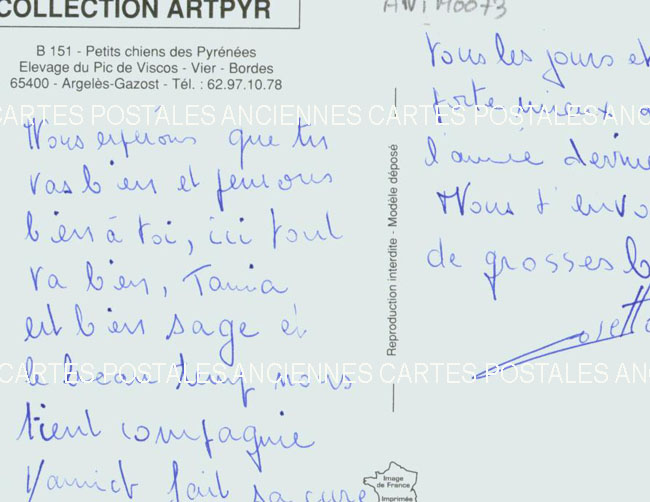 COLLECTION ARTPYR
B 151 - Petits chiens des Pyrénées
Elevage du Pic de Viscos - Vier - Bordes
65400 - Argelès-Gazost - Tél. : 62.97.10.78
CARTES POSTALES ANCIENNES CARTES POSTALES ANCIENNES
Nous espérons que tu
vas bien et pensons
bien à toi, ici tout
va bien, Tania
est bien sage et
le beau temps nous
CARTES POSTALES ANCIENNES CARTES POSTALES ANCIEN
tient compagnie
Yannick fait sa cure
Reproduction interdite - Modèle déposé
ANIM0073
tous les jours et
porte mieux
l'année derni
Nous t'envo
de grosses b
Josette
Image
de France
Imprimée